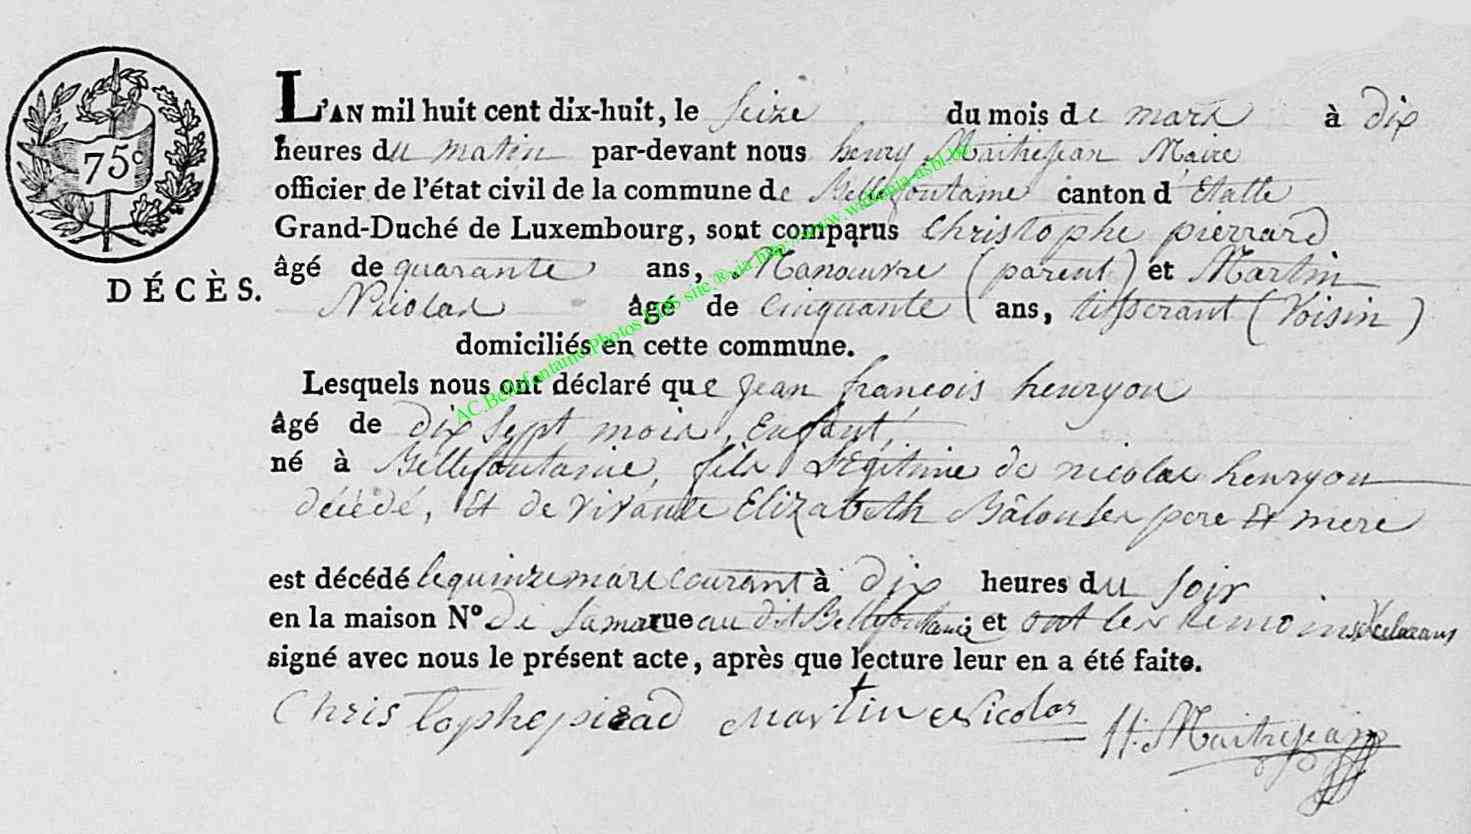 75c
DÉCÈS.
L'AN mil huit cent dix-huit, le Seize du mois de mars à dix
heures du matin par-devant nous henry Maitrejean Maire
officier de l'état civil de la commune de Bellefontaine canton d'Etalle
Grand-Duché de Luxembourg, sont comparus Christophe pierrard
âgé de quarante ans, Manœuvre (parent) et Martin
Nicolas âgé de Cinquante ans, tisserant (Voisin)
domiciliés en cette commune.
Lesquels nous ont déclaré que jean francois henryon
âgé de dix Sept mois, Enfant,
né à Bellefontaine, fils Légitime de nicolas henryon
décédé, Et de vivante Elizabeth pere Et mere
est décédé le quinze mars courant à dix heures du soir
en la maison N° de Sa mere rue au dit Bellefontaine; et ont les temoins déclarans
signé avec nous le présent acte, après que lecture leur en a été faite.
Christophe pierad Martin Nicolas H. Maitrejean
AC.Bellefontaine Photos site